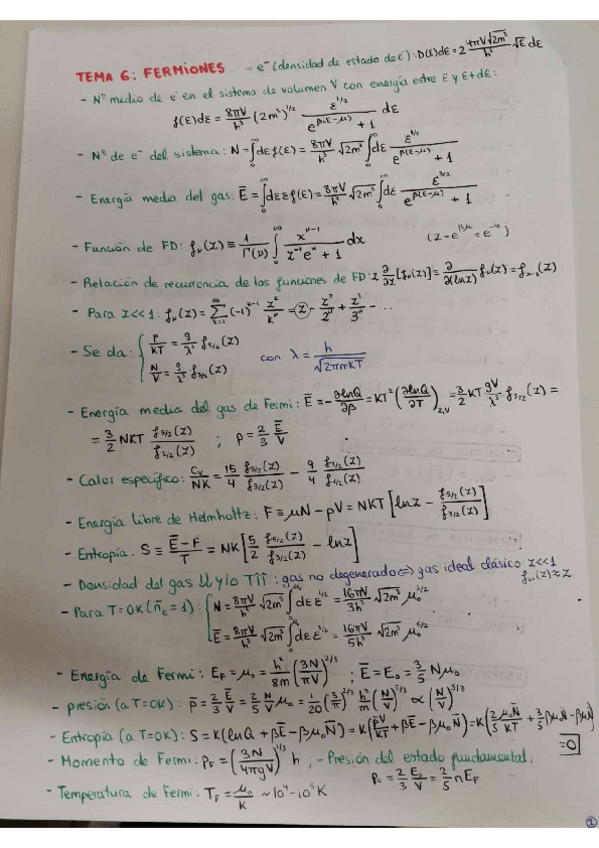 TEMA 6: FERMIONES - e⁻ (densidad de estado de e⁻): D(ε)dε = 2 4πV√2m³/h³ √ε dε
- Nº medio de e⁻ en el sistema de volumen V con energía entre ε y ε+dε:
f(ε)dε = 8πV/h³ (2m³)^1/2 ε^1/2/(e^β(ε-μ) + 1) dε
- Nº de e⁻ del sistema: N = ∫₀^∞ dε f(ε) = 8πV/h³ √2m³ ∫₀^∞ dε ε^1/2/(e^β(ε-μ) + 1)
- Energía media del gas: Ē = ∫₀^∞ dε ε f(ε) = 8πV/h³ √2m³ ∫₀^∞ dε ε^3/2/(e^β(ε-μ) + 1)
- Función de FD: f_ν(z) ≡ 1/Γ(ν) ∫₀^∞ x^ν-1/(z⁻¹e^x + 1) dx (z = e^βμ = e^-α)
- Relación de recurrencia de las funciones de FD: z ∂/∂z [f_ν(z)] = ∂/∂(ln z) f_ν(z) = f_ν-1(z)
- Para z<<1: f_ν(z) = ∑_k=1^∞ (-1)^k-1 z^k/k^ν = z - z²/2^ν + z³/3^ν - ...
- Se da: { P/KT = g/λ³ f_5/2(z)
N/V = g/λ³ f_3/2(z) con λ = h/√2πmKT
- Energía media del gas de Fermi: Ē = - ∂lnQ/∂β = KT² (∂lnQ/∂T)_z,V = 3/2 KT gV/λ³ f_5/2(z) =
= 3/2 NKT f_5/2(z)/f_3/2(z) ; p = 2/3 Ē/V
- Calor específico: C_V/NK = 15/4 f_5/2(z)/f_3/2(z) - 9/4 f_3/2(z)/f_1/2(z)
- Energía libre de Helmholtz: F ≡ μN - pV = NKT [ln z - f_5/2(z)/f_3/2(z)]
- Entropía: S ≡ (Ē-F)/T = NK [5/2 f_5/2(z)/f_3/2(z) - ln z]
- Densidad del gas ↓↓ y/o T↑↑: gas no degenerado ⇔ gas ideal clásico: z<<1
f_ν(z) ≈ z
- Para T=0K (n̄_ε = 1): { N = 8πV/h³ √2m³ ∫₀^μ₀ dε ε^1/2 = 16πV/3h³ √2m³ μ₀^3/2
Ē = 8πV/h³ √2m³ ∫₀^μ₀ dε ε^3/2 = 16πV/5h³ √2m³ μ₀^5/2
- Energía de Fermi: E_F = μ₀ = h²/8m (3N/πV)^2/3 ; Ē = E₀ = 3/5 Nμ₀
- presión (a T=0K): p̄ = 2/3 Ē/V = 2/5 N/V μ₀ = 1/20 (3/π)^2/3 h²/m (N/V)^5/3 ∝ (N/V)^5/3
- Entropía (a T=0K): S = K(lnQ + βĒ - βμ₀N̄) = K(p̄V/KT + βĒ - βμ₀N̄) = K(2/5 μ₀N̄/KT + 3/5 βμ₀N̄ - βμ₀N̄)
=0
- Momento de Fermi: p_F = (3N/4πgV)^1/3 h ; - Presión del estado fundamental:
P₀ = 2/3 E₀/V = 2/5 nE_F
- Temperatura de Fermi: T_F = μ₀/K ~ 10⁴-10⁵ K
①